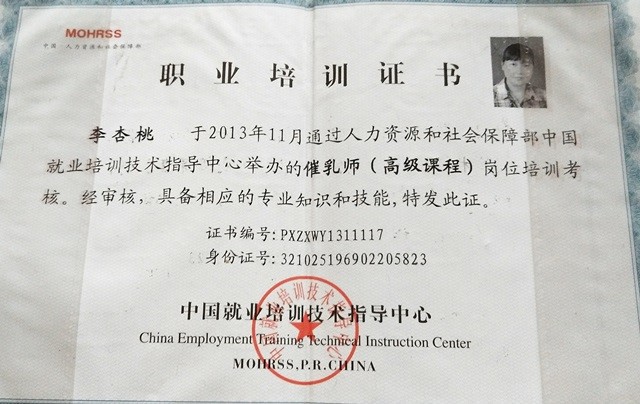 MOHRSS
中国 人力资源和社会保障部
职业培训证书
李杏桃 于2013年11月通过人力资源和社会保障部中国
就业培训技术指导中心举办的催乳师（高级课程）岗位培训考
核。经审核，具备相应的专业知识和技能,特发此证。
证书编号:PXZXWY1311117
身份证号:321025196902205823
中国就业培训技术指导中心
China Employment Training Technical Instruction Center
MOHRSS,P.R.CHINA
中国就业培训技术指导中心